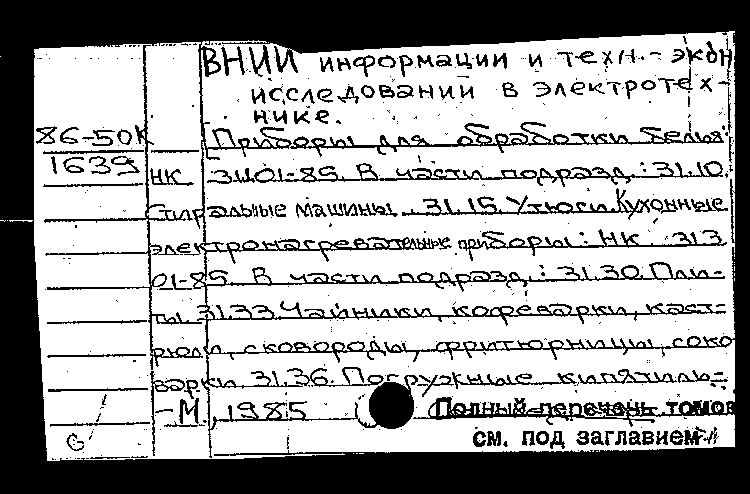 ВНИИ информации и техн.-экон
исследований в электротех-
нике.
86-50К [Приборы для обработки белья:
1639 НК 3401-85. В части подразд.: 31.10.
Стиральные машины. 31.15. Утюги. Кухонные
электронагревательные приборы: НК 313
01-85. В части подразд.: 31.30. Пли-
ты 31.33. Чайники, кофеварки, каст-
рюли, сковороды, фритюрницы, соко
варки. 31.36. Погружные кипятиль-
-М., 1985 Полный перечень томов
см. под заглавием